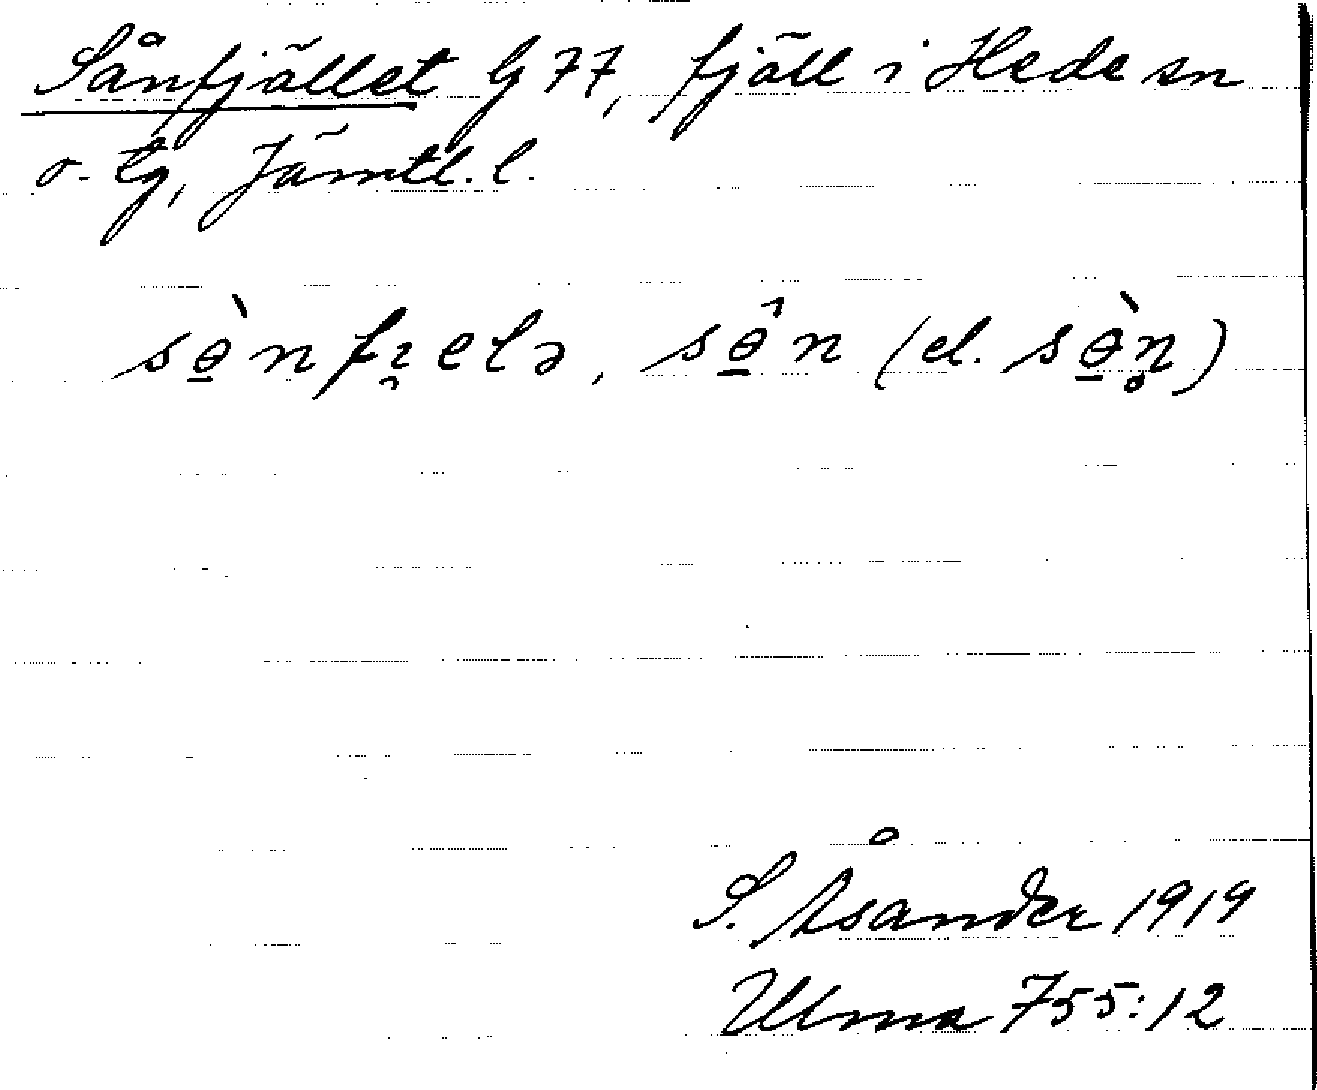 Sånfjället G 77, fjäll i Hede sn
o. tg, Jämtl. l.
sɵ̠̀nfɿ̯elə, sɵ̠̂n (el. sɵ̠̀n̥)
S. Åsander 1919
Ulma 755:12